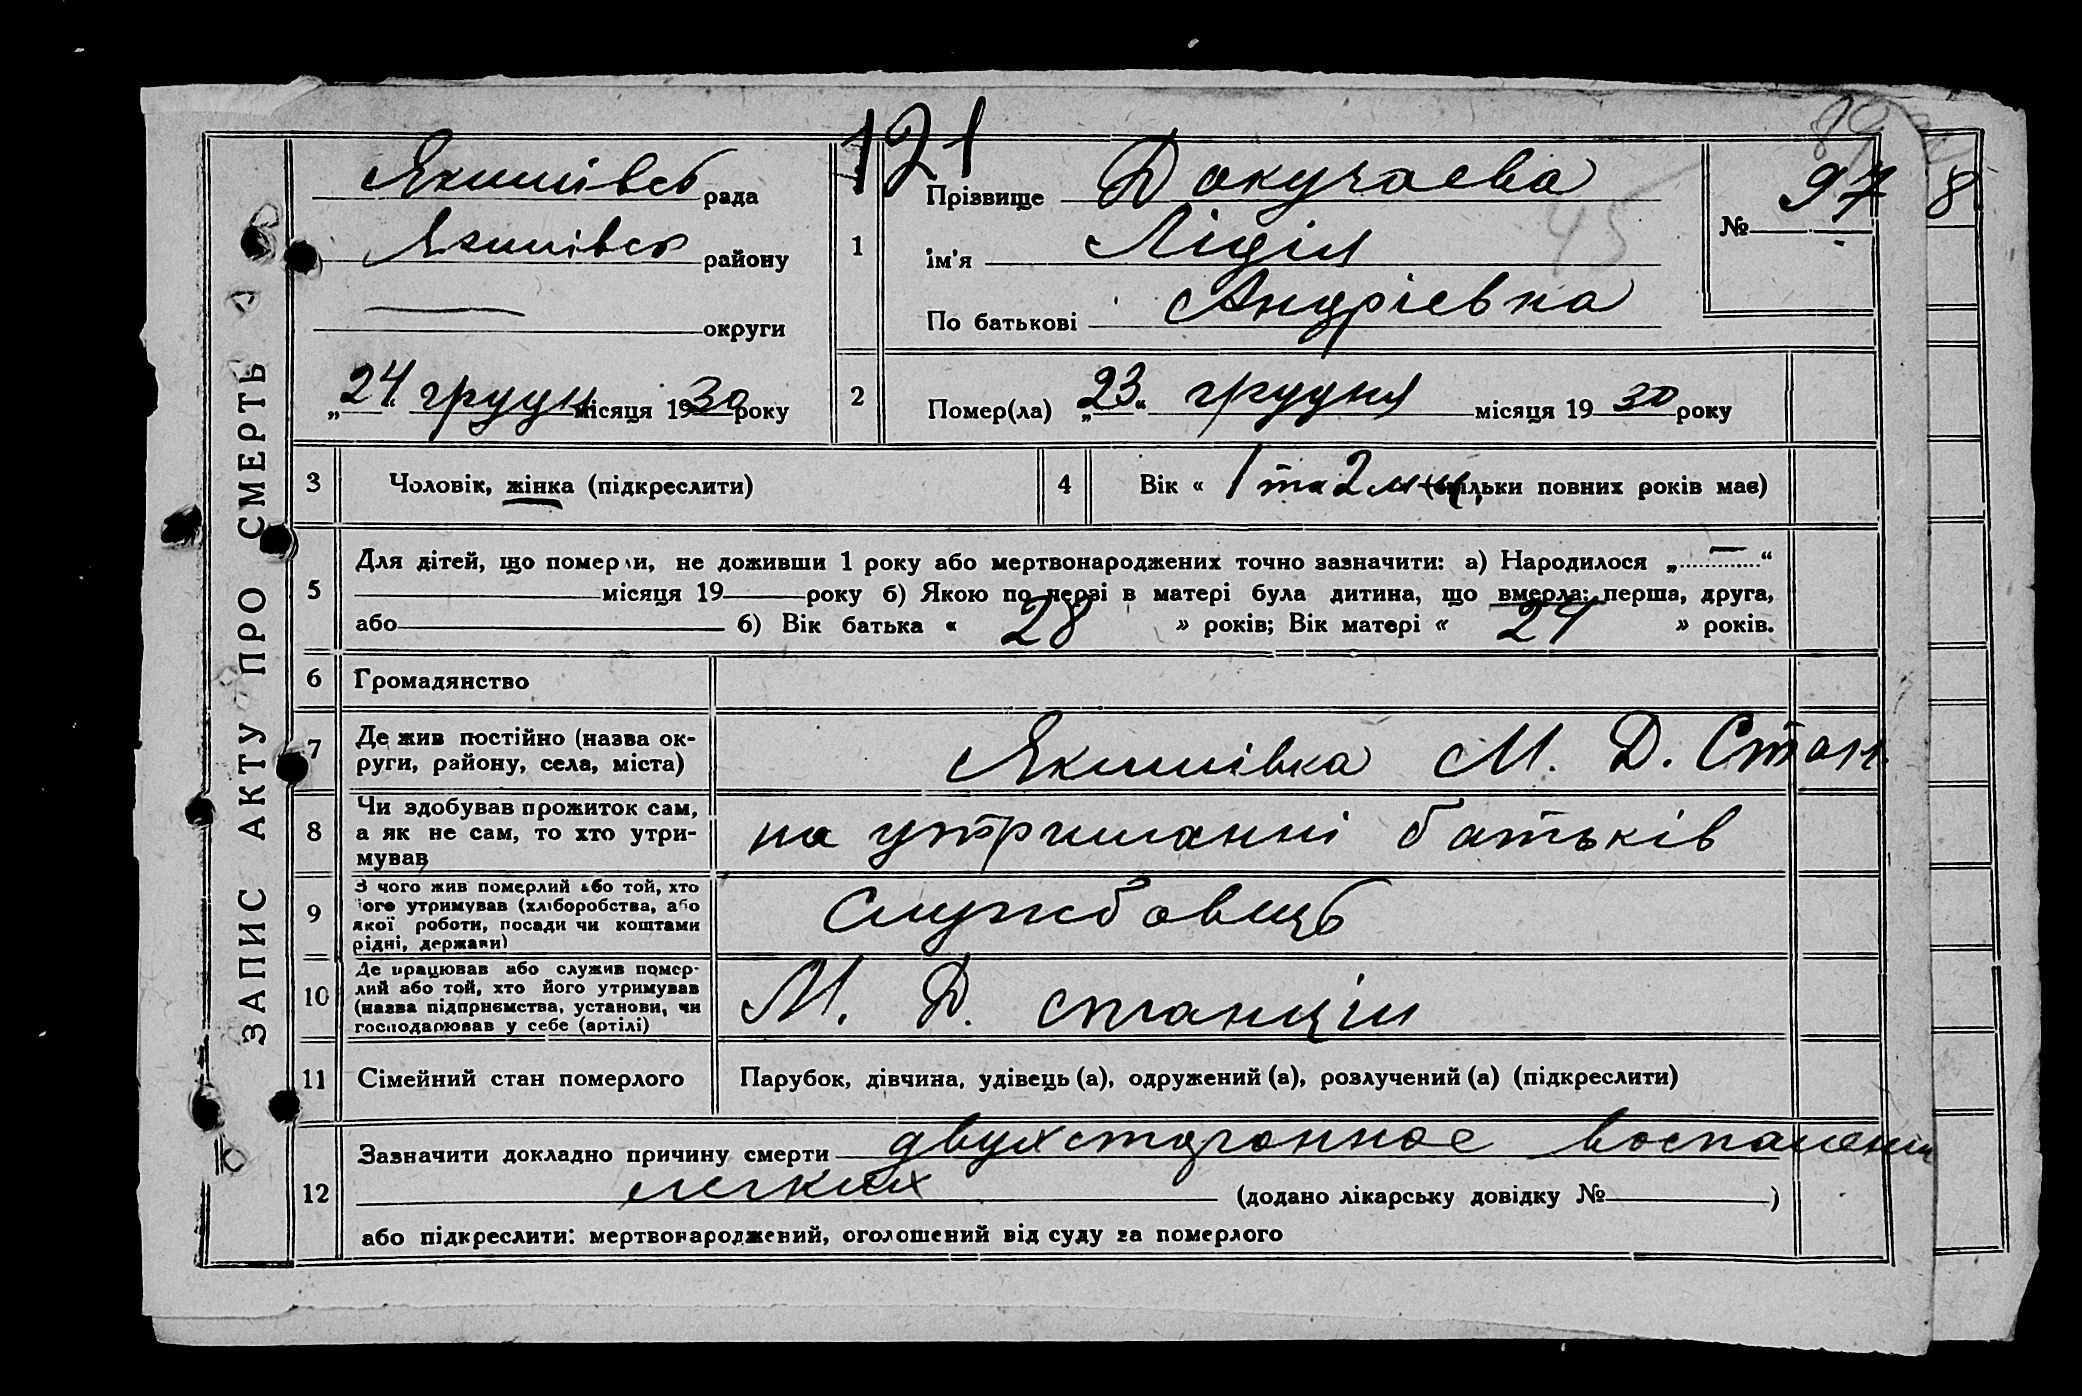 ЗАПИС АКТУ ПРО СМЕРТЬ
121
Якимівсь рада
Якимівсь району
округи
„24“ грудн місяця 1930 року
1
Прізвище Докучаєва
ім'я Лідія
По батькові Андріевна
45
№ 97
8
2
Помер(ла) „23“ грудня місяця 1930 року
3 Чоловік, жінка (підкреслити)
4 Вік « 1 та 2 м-ц. (скільки повних років має)
5 Для дітей, що померли, не доживши 1 року або мертвонароджених точно зазначити: а) Народилося „—“
місяця 19 року б) Якою по черзі в матері була дитина, що вмерла: перша, друга,
або б) Вік батька « 28 » років; Вік матері « 24 » років.
6 Громадянство
7 Де жив постійно (назва ок-
руги, району, села, міста)
Якимівка М. Д. Стан.
8 Чи здобував прожиток сам,
а як не сам, то хто утри-
мував
на утриманні батьків
9 З чого жив померлий або той, хто
його утримував (хліборобства, або
якої роботи, посади чи коштами
рідні, держави)
Службовець
10 Де працював або служив помер-
лий або той, хто його утримував
(назва підприємства, установи, чи
господарював у себе (артілі)
М. Д. станція
11 Сімейний стан померлого
Парубок, дівчина, удівець (а), одружений (а), розлучений (а) (підкреслити)
12 Зазначити докладно причину смерти двухсторонное воспалени
легких (додано лікарську довідку № )
або підкреслити: мертвонароджений, оголошений від суду за померлого